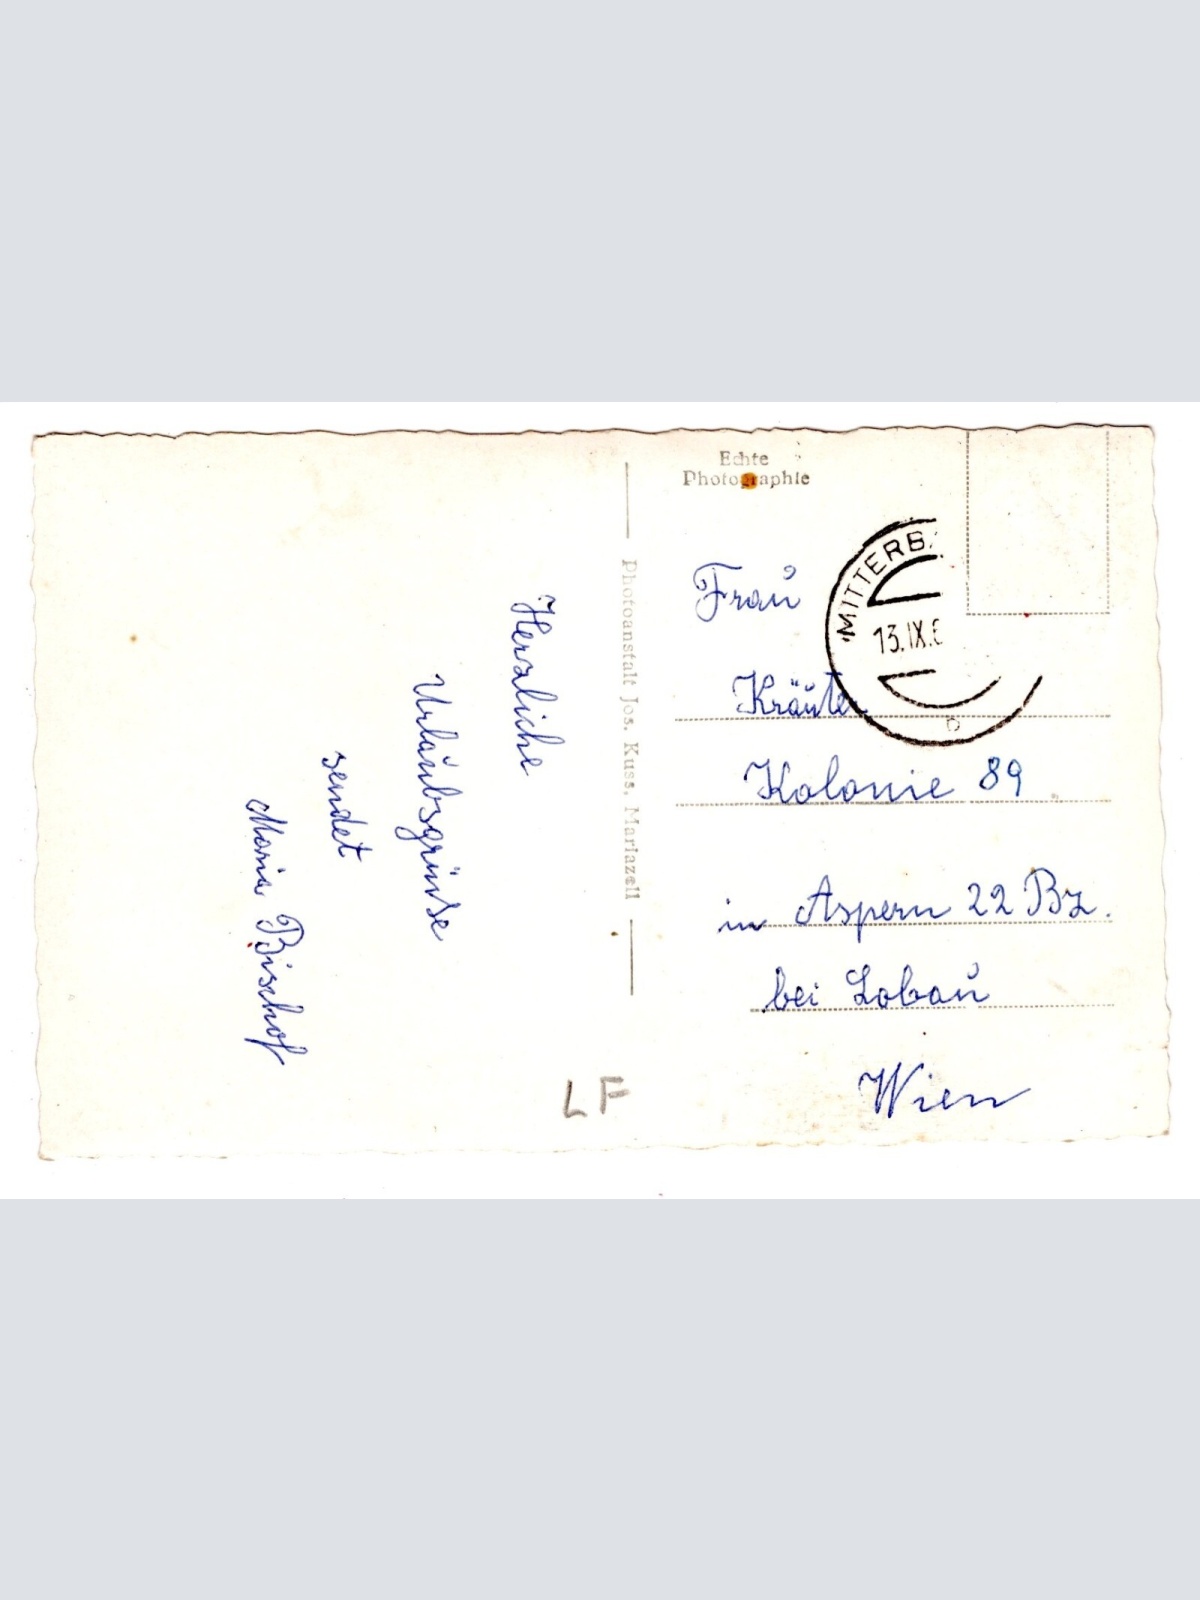 Echte
Photographie
Photoanstalt Jos. Kuss, Mariazell
Herzliche
Urlaubsgrüsse
sendet
Maria Bischof
MITTERB
13.IX.6
Frau
Kräuter
Kolonie 89
in Aspern 22 Bz.
bei Lobau
Wien
LF